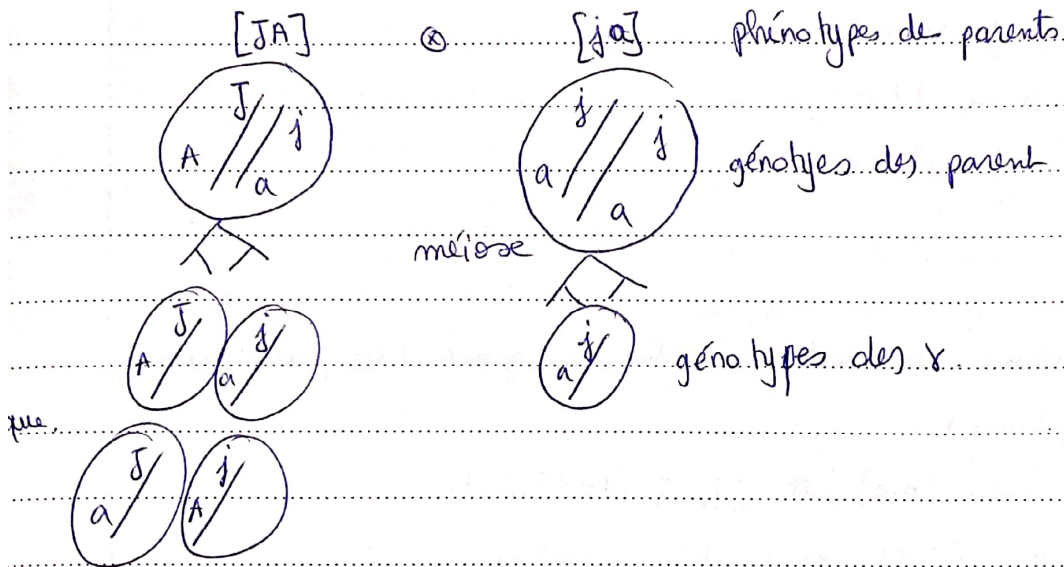 [JA] ⊗ [ja] phénotypes de parents.
J j j j
A a a a génotyes des parent
méiose
J j j
A a a génotypes des γ.
que.
J j
a A